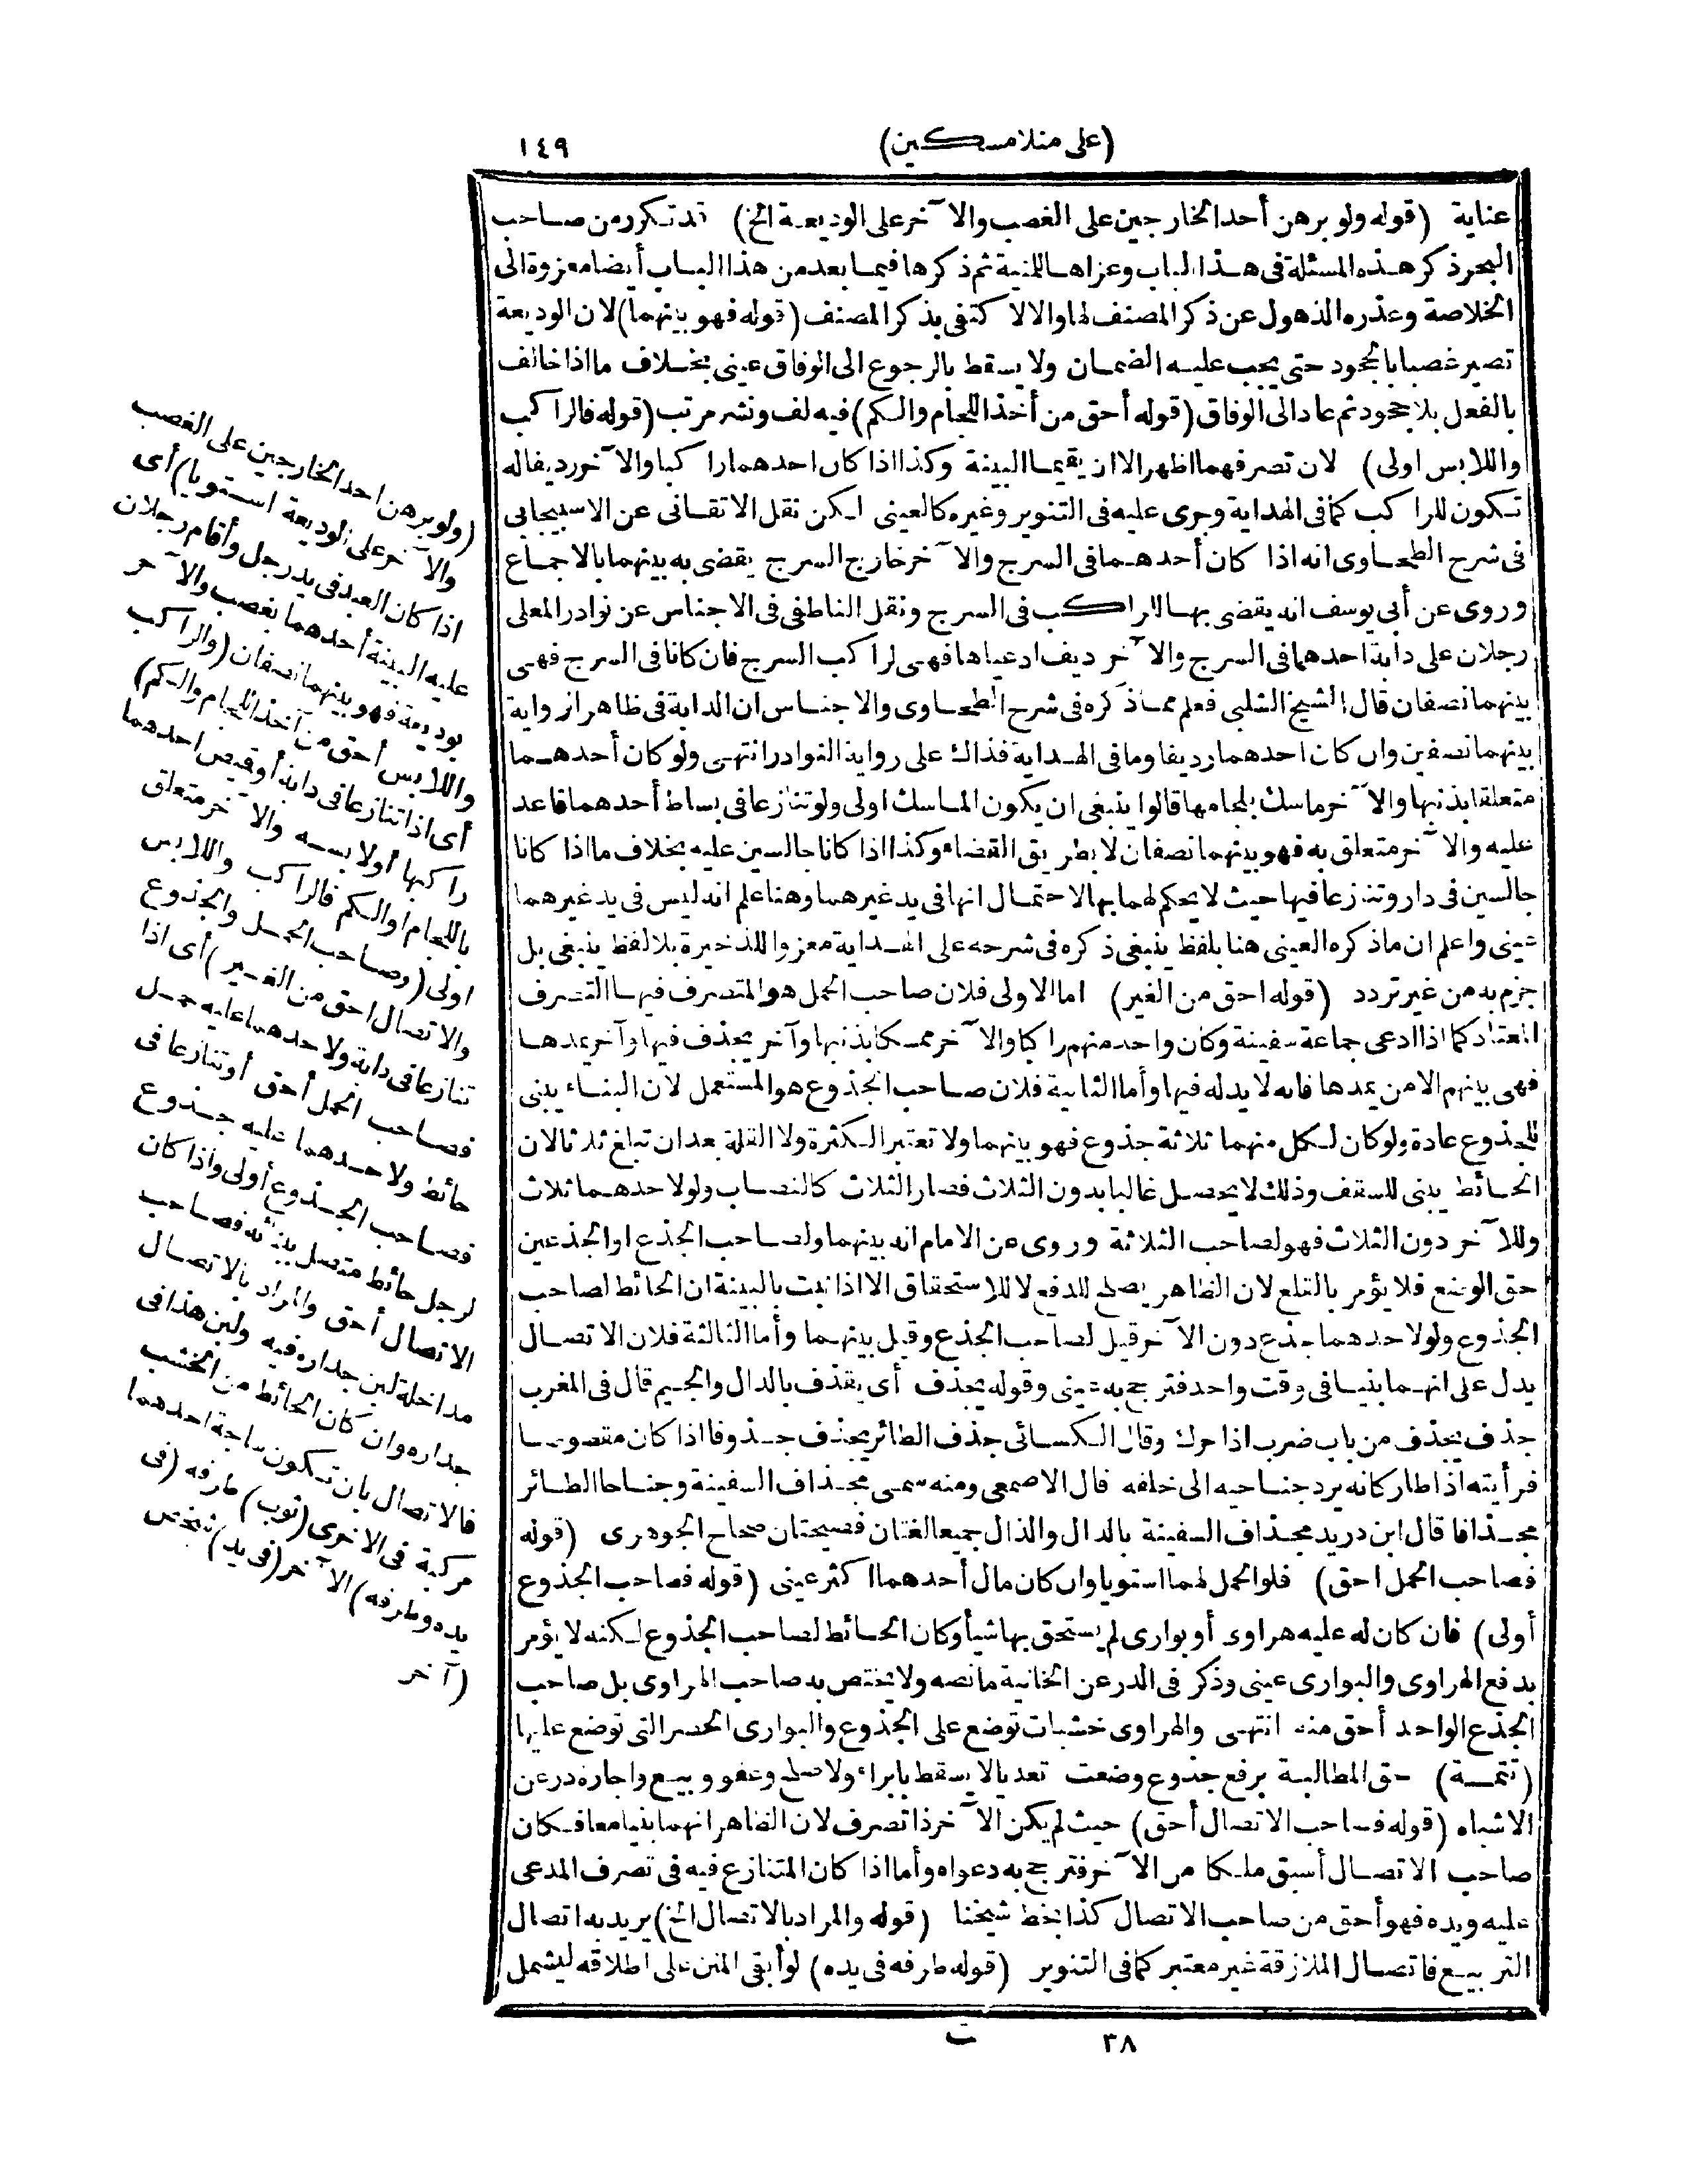 (على منلا مسكين) ١٤٩
عناية (قوله ولو برهن أحد الخارجين على الغصب والآخر على الوديعة الخ) قد تكرر من صاحب
البحر ذكر هذه المسئلة فى هذا الباب وعزاها للمنية ثم ذكرها فيما بعد من هذا الباب أيضا معزوة الى
الخلاصة وعذره الذهول عن ذكر المصنف لها والا لاكتفى بذكر المصنف (قوله فهو بينهما) لان الوديعة
تصير غصبا بالجحود حتى يجب عليه الضمان ولا يسقط بالرجوع الى الوفاق عينى بخلاف ما اذا خالف
بالفعل بلا جحود ثم عاد الى الوفاق (قوله أحق من أخذ اللجام والكم) فيه لف ونشر مرتب (قوله فالراكب
واللابس اولى) لان تصرفهما اظهر الا ان يقيما البينة وكذا اذا كان احدهما راكبا والآخر رديفا له
تكون للراكب كما فى الهداية وجرى عليه فى التنوير وغيره كالعينى لكن نقل الاتقانى عن الاسبيجابى
فى شرح الطحاوى انه اذا كان أحدهما فى السرج والآخر خارج السرج يقضى به بينهما بالاجماع
وروى عن أبى يوسف انه يقضى بها للراكب فى السرج ونقل الناطفى فى الاجناس عن نوادر المعلى
رجلان على دابة احدهما فى السرج والآخر رديف ادعياها فهى لراكب السرج فان كانا فى السرج فهى
بينهما نصفان قال الشيخ الشلبى فعلم مما ذكره فى شرح الطحاوى والاجناس ان الدابة فى ظاهر الرواية
بينهما نصفين وان كان احدهما رديفا وما فى الهداية فذاك على رواية النوادر انتهى ولو كان أحدهما
متعلقا بذنبها والآخر ماسك بلجامها قالوا ينبغى ان يكون الماسك اولى ولو تنازعا فى بساط أحدهما قاعد
عليه والآخر متعلق به فهو بينهما نصفان لا بطريق القضاء وكذا اذا كانا جالسين عليه بخلاف ما اذا كانا
جالسين فى دار وتنازعا فيها حيث لا يحكم لهما بها لاحتمال انها فى يد غيرهما وهنا علم انه ليس فى يد غيرهما
عينى واعلم ان ما ذكره العينى هنا بلفظ ينبغى ذكره فى شرحه على الهداية معزوا للذخيرة بلا لفظ ينبغى بل
جزم به من غير تردد (قوله احق من الغير) اما الاولى فلان صاحب الحمل هو المتصرف فيها التصرف
المعتاد كما اذا ادعى جماعة سفينة وكان واحد منهم راكبا والآخر ممسكا بذنبها وآخر يجذف فيها وآخر يمدها
فهى بينهم الا من يمدها فانه لا يد له فيها وأما الثانية فلان صاحب الجذوع هو المستعمل لان البناء يبنى
للجذوع عادة ولو كان لكل منهما ثلاثة جذوع فهو بينهما ولا تعتبر الكثرة ولا القلة بعد ان تبلغ ثلاثا لان
الحائط يبنى للسقف وذلك لا يحصل غالبا بدون الثلاث فصار الثلاث كالنصاب ولو لاحدهما ثلاث
وللآخر دون الثلاث فهو لصاحب الثلاثة وروى عن الامام انه بينهما ولصاحب الجذع او الجذعين
حق الوضع فلا يؤمر بالقلع لان الظاهر يصلح للدفع لا للاستحقاق الا اذا ثبت بالبينة ان الحائط لصاحب
الجذوع ولو لاحدهما جذع دون الآخر قيل لصاحب الجذع وقيل بينهما وأما الثالثة فلان الاتصال
يدل على انهما بنيا فى وقت واحد فترجح به عينى وقوله يجذف أى يقذف بالدال والجيم قال فى المغرب
جذف يجذف من باب ضرب اذا حرك وقال الكسائى جذف الطائر يجذف جذوفا اذا كان مقصوصا
فرأيته اذا طار كانه يرد جناحيه الى خلفه قال الاصمعى ومنه سمى مجذاف السفينة وجناحا الطائر
مجذافا قال ابن دريد مجذاف السفينة بالدال والذال جميعا لغتان فصيحتان صحاح الجوهرى (قوله
فصاحب الحمل احق) فلو الحمل لهما استويا وان كان مال أحدهما اكثر عينى (قوله فصاحب الجذوع
أولى) فان كان له عليه هراوى أو بوارى لم يستحق بها شيأ وكان الحائط لصاحب الجذوع لكنه لا يؤمر
بدفع الهراوى والبوارى عينى وذكر فى الدر عن الخانية ما نصه ولا يختص به صاحب الهراوى بل صاحب
الجذع الواحد أحق منه انتهى والهراوى خشبات توضع على الجذوع والبوارى الحصر التى توضع عليها
(تتمة) حق المطالبة برفع جذوع وضعت تعديا لا يسقط بابراء ولا صلح وعفو وبيع واجارة در عن
الاشباه (قوله فصاحب الاتصال أحق) حيث لم يكن الآخر ذا تصرف لان الظاهر انهما بنيا معا فكان
صاحب الاتصال أسبق ملكا من الآخر فترجح به دعواه وأما اذا كان المتنازع فيه فى تصرف المدعى
عليه ويده فهو أحق من صاحب الاتصال كذا بخط شيخنا (قوله والمراد بالاتصال الخ) يريد به اتصال
التربيع فاتصال الملازقة غير معتبر كما فى التنوير (قوله طرفه فى يده) لو أبقى المتن على اطلاقه ليشمل
(ولو برهن احد الخارجين على الغصب
والآخر على الوديعة استويا) أى
اذا كان العبد فى يد رجل وأقام رجلان
عليه البينة أحدهما بغصب والآخر
بوديعة فهو بينهما نصفان (والراكب
واللابس أحق من آخذ اللجام والكم)
أى اذا تنازعا فى دابة أو قميص احدهما
راكبها أو لابسه والآخر متعلق
باللجام او الكم فالراكب واللابس
اولى (وصاحب الحمل والجذوع
والاتصال احق من الغير) أى اذا
تنازعا فى دابة ولاحدهما عليه حمل
فصاحب الحمل أحق أو تنازعا فى
حائط ولاحدهما عليه جذوع
فصاحب الجذوع أولى واذا كان
لرجل حائط متصل ببنائه فصاحب
الاتصال أحق والمراد بالاتصال
مداخلة لبن جداره فيه ولبن هذا فى
جداره وان كان الحائط من الخشب
فالاتصال بان تكون ساجة احدهما
مركبة فى الاخرى (ثوب) طرفه (فى
يده وطرفه) الآخر (فى يد) شخص
(آخر
٣٨ ت